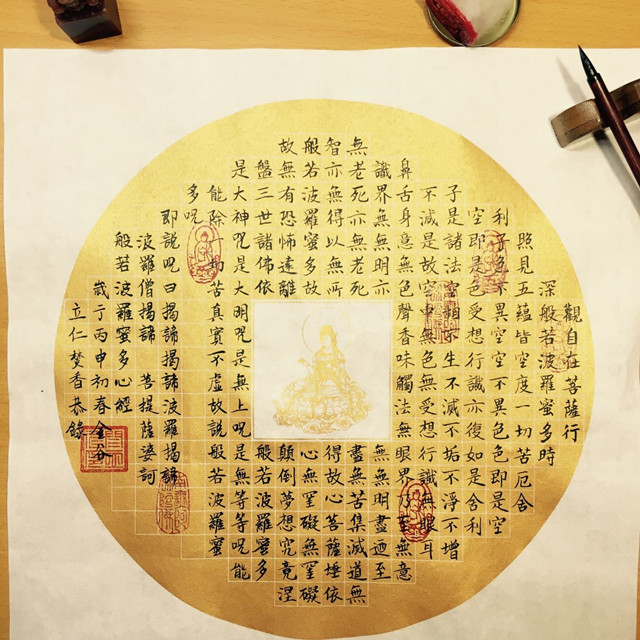 觀自在菩薩行
深般若波羅蜜多時
照見五蘊皆空度一切苦厄舍
利子色不異空空不異色色即是空
空即是色受想行識亦復如是舍利
子是諸法空相不生不滅不垢不淨不增
不滅是故空中無色無受想行識無眼耳
鼻舌身意無色聲香味觸法無眼界乃至無意
識界無無明亦 無無明盡迺至
無老死亦無老死 盡無苦集滅道無
智亦無得以無所 得故心菩薩埵依
般若波羅蜜多故 心無罣礙無罣礙
故無有恐怖遠離 顛倒夢想究竟涅
盤三世諸佛依 般若波羅蜜多
是大神咒是大明咒是無上咒是無等等咒能
能除一切苦真實不虛故說般若波羅蜜
多咒
即說咒曰揭諦揭諦波羅揭諦
波羅僧揭諦 菩提薩婆訶
般若波羅蜜多心經
歲于丙申初春金谷
立仁焚香恭錄